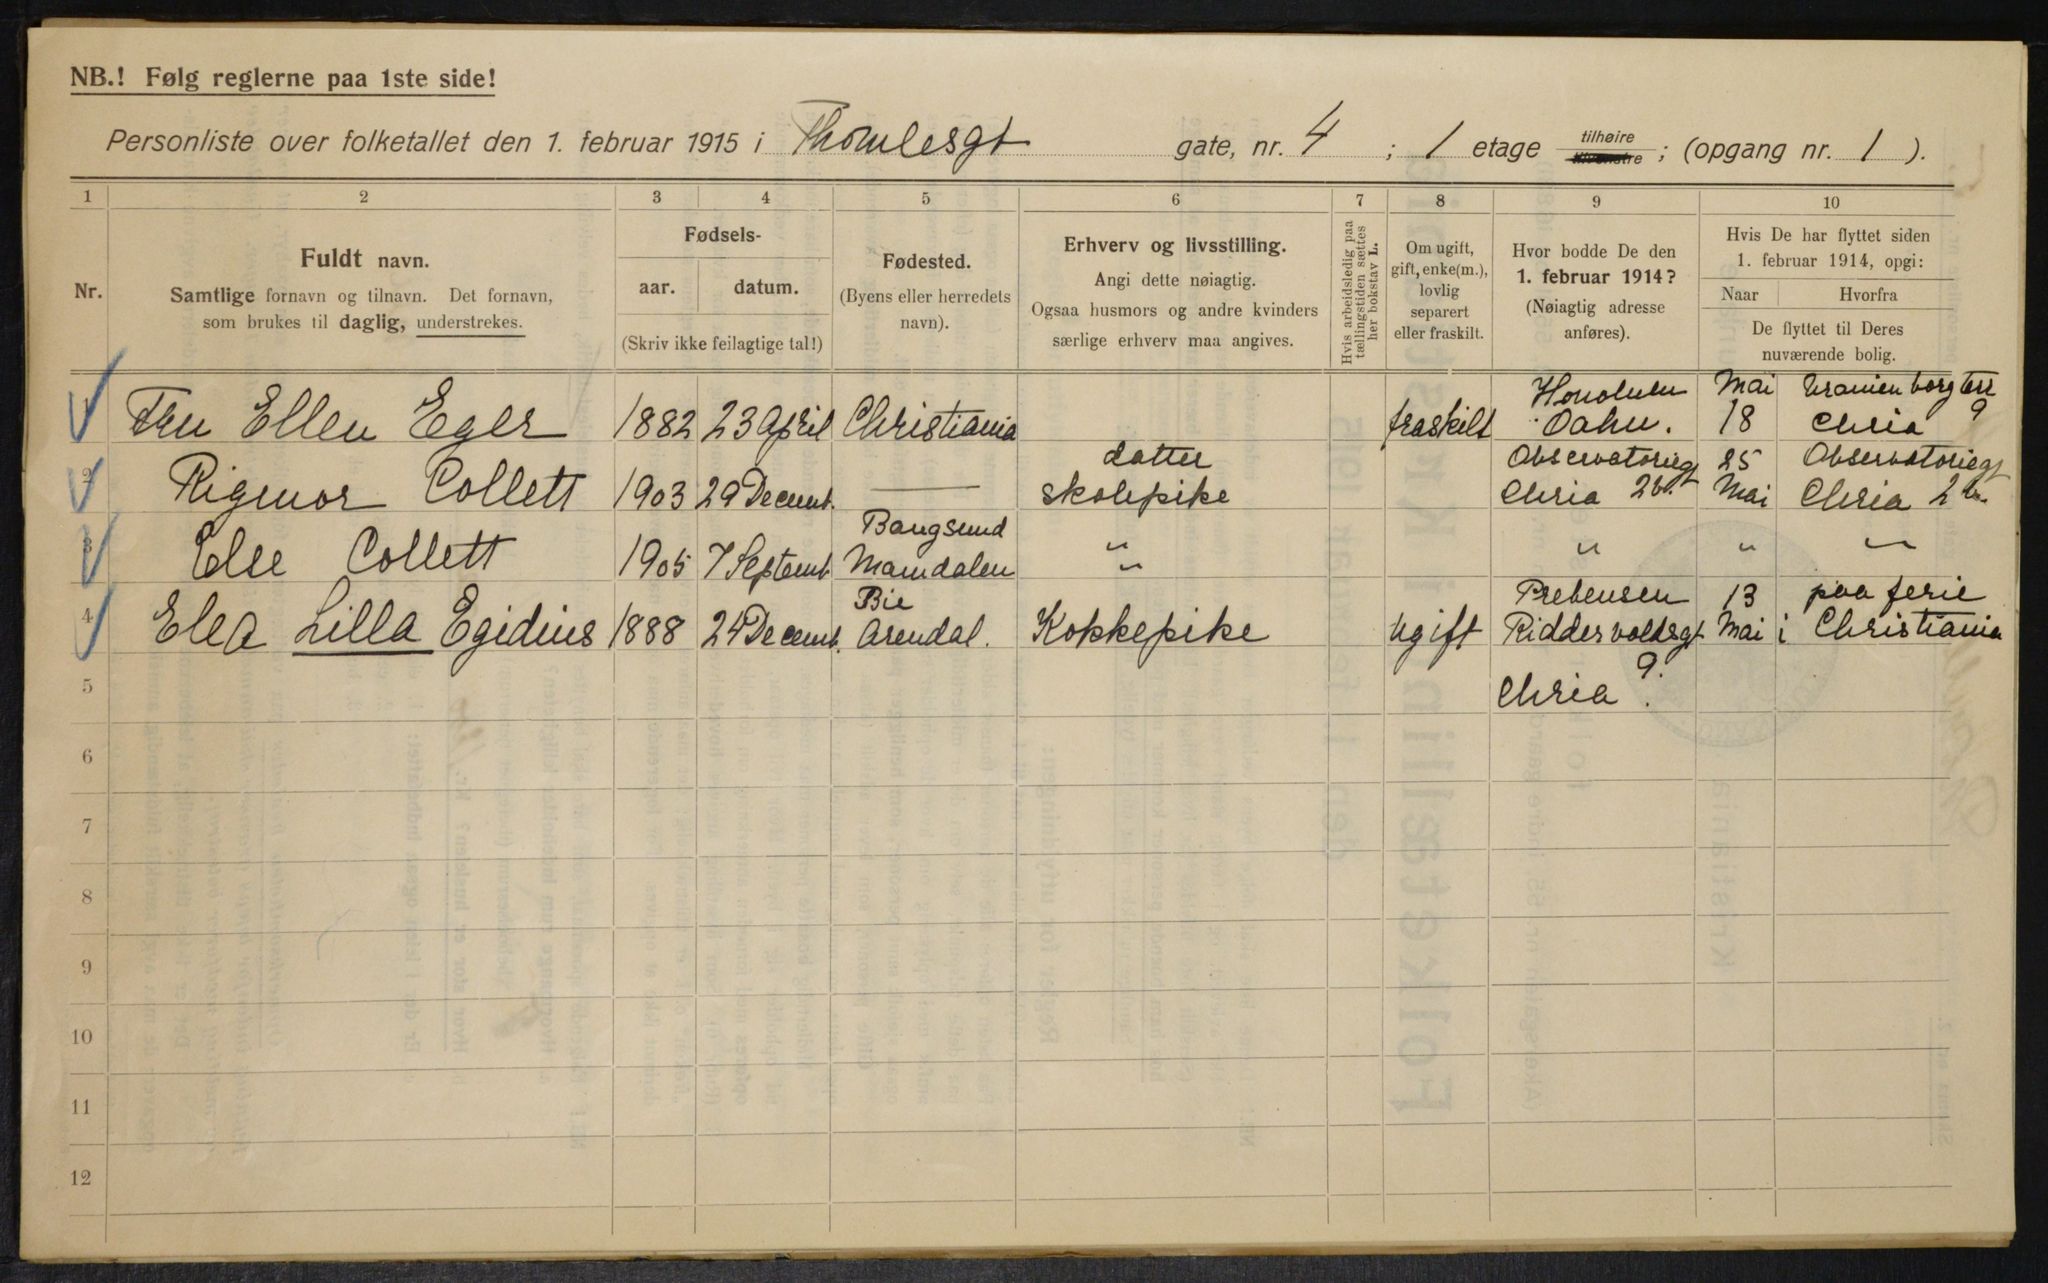 NB.! Følg reglerne paa 1ste side!
Personliste over folketallet den 1. februar 1915 i Thomlesgt gate, nr. 4 ; 1 etage tilhøire tilvenstre ; (opgang nr. 1 ).
1 2 3 4 5 6 7 8 9 10
Nr.
Fuldt navn.
Samtlige fornavn og tilnavn. Det fornavn,
som brukes til daglig, understrekes.
Fødsels-
aar. datum.
(Skriv ikke feilagtige tal!)
Fødested.
(Byens eller herredets
navn).
Erhverv og livsstilling.
Angi dette nøiagtig.
Ogsaa husmors og andre kvinders
særlige erhverv maa angives.
Hvis arbeidsledig paa
tællingstiden sættes
her bokstav L.
Om ugift,
gift, enke(m.),
lovlig
separert
eller fraskilt.
Hvor bodde De den
1. februar 1914?
(Nøiagtig adresse
anføres).
Hvis De har flyttet siden
1. februar 1914, opgi:
Naar Hvorfra
De flyttet til Deres
nuværende bolig.
Honolulu Mai Uranienborgterr
1 Fru Ellen Eger 1882 23 April Christiania fraskilt Oahu. 18 Chria 9
datter Observatoriegt 25 Observatoriegt
2 Rigmor Collett 1903 29 Decemb. — skolepike Chria 2b. Mai Chria 2b.
Bangsund
3 Else Collett 1905 7 Septemb Namdalen " " " " "
Bie Prebensen 13 paa ferie
4 Elea Lilla Egidius 1888 24 Decemb. Arendal. Kokkepike Ugift Riddervoldsgt Mai i Christiania
9.
5 Chria.
6
7
8
9
10
11
12